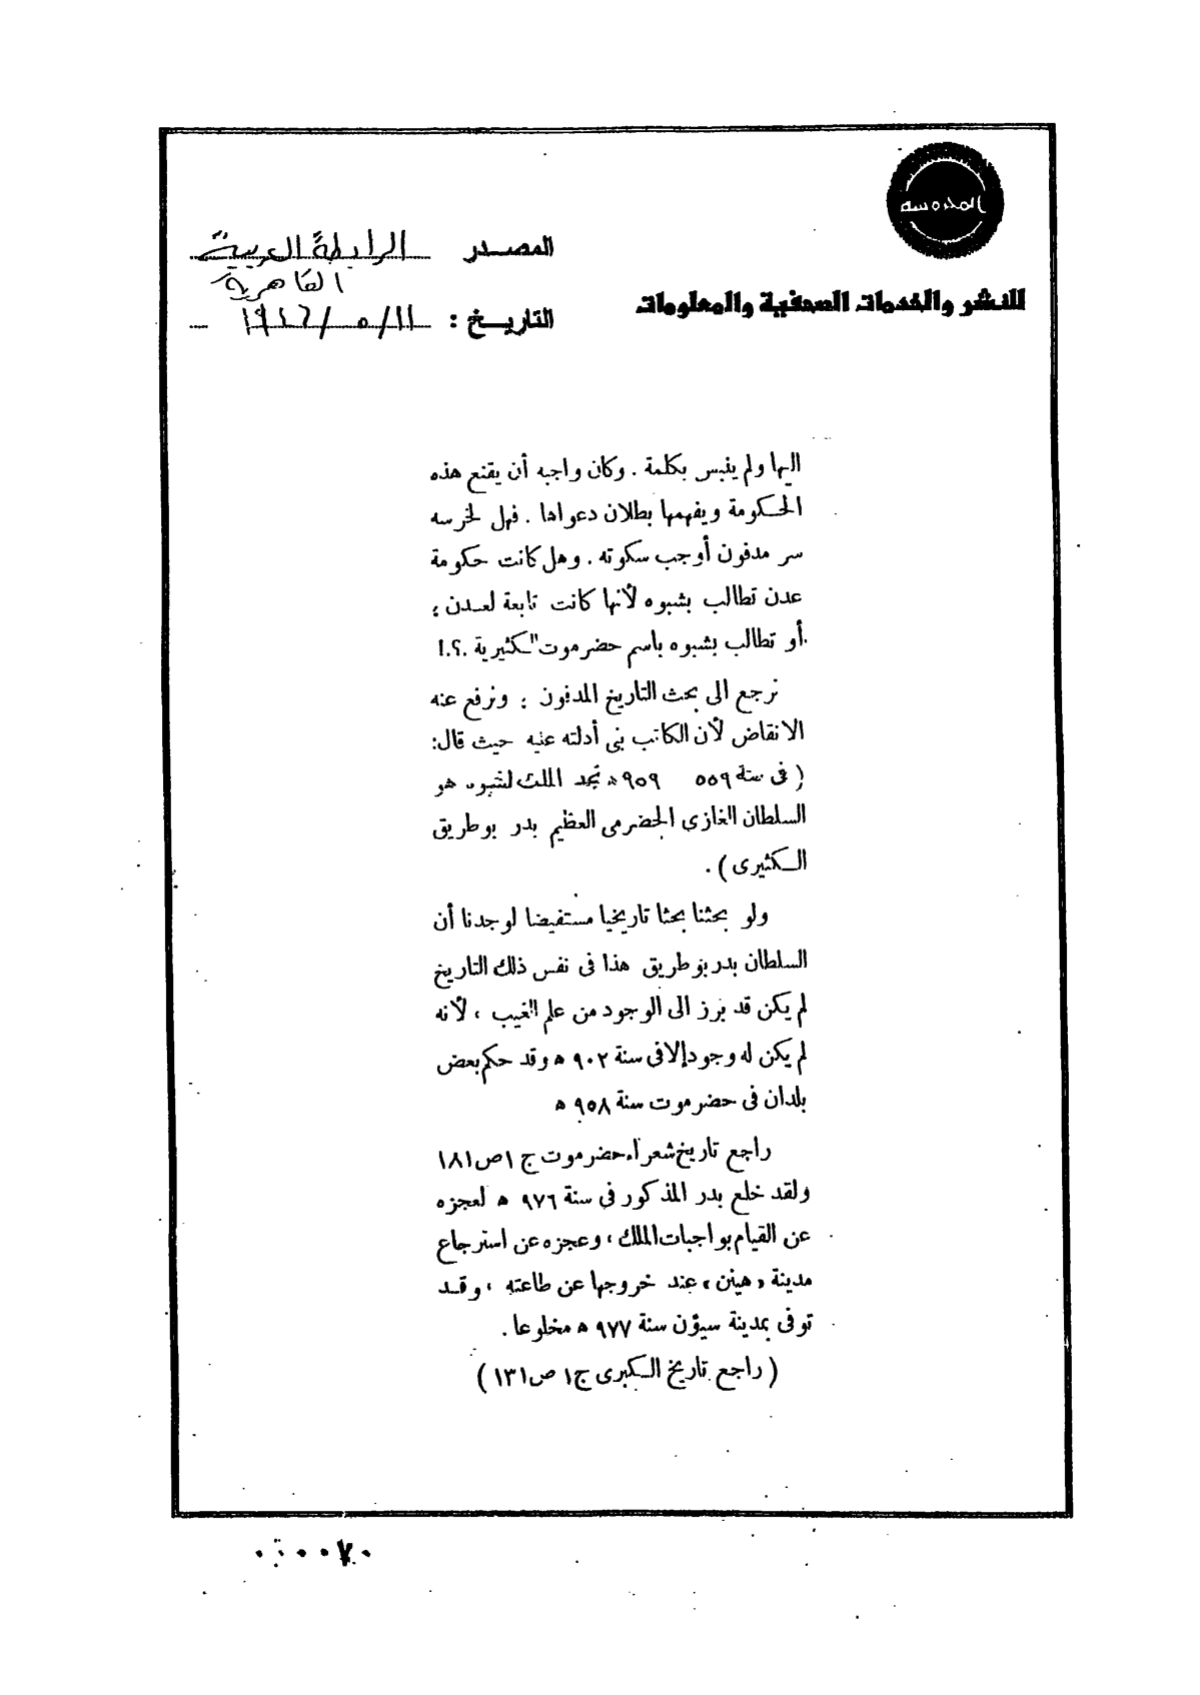 المحروسه
للنشر والخدمات الصحفية والمعلومات
المصدر الرابطة العربية
القاهرية
التاريخ : ١١/ ٥ /١٩٤٦
اليها ولم ينبس بكلمة . وكان واجبه أن يقنع هذه
الحكومة ويفهمها بطلان دعواها . فهل لخرسه
سر مدفون أوجب سكوته . وهل كانت حكومة
عدن تطالب بشبوه لأنها كانت تابعة لعدن ؛
أو تطالب بشبوه باسم حضرموت الكثيرية .؟.!
نرجع الى بحث التاريخ المدفون ؛ ونرفع عنه
الانقاض لأن الكاتب بنى أدلته عليه حيث قال:
( فى سنة ٥٥٩ ٩٥٩ ه نجد الملك لشبوه هو
السلطان الغازى الحضرمى العظيم بدر بوطريق
الكثيرى ) .
ولو بحثنا بحثا تاريخيا مستفيضا لوجدنا أن
السلطان بدر بوطريق هذا فى نفس ذلك التاريخ
لم يكن قد برز الى الوجود من علم الغيب ، لأنه
لم يكن له وجود إلا فى سنة ٩٠٢ ه وقد حكم بعض
بلدان فى حضرموت سنة ٩٥٨ ه
راجع تاريخ شعراء حضرموت ج ١ ص ١٨١
ولقد خلع بدر المذكور فى سنة ٩٧٦ ه لعجزه
عن القيام بواجبات الملك ، وعجزه عن استرجاع
مدينة « هينن » عند خروجها عن طاعته ، وقد
توفى بمدينة سيؤن سنة ٩٧٧ ه مخلوعا .
( راجع تاريخ الكبرى ج١ ص ١٣١ )
٠٠٠٠٧٠